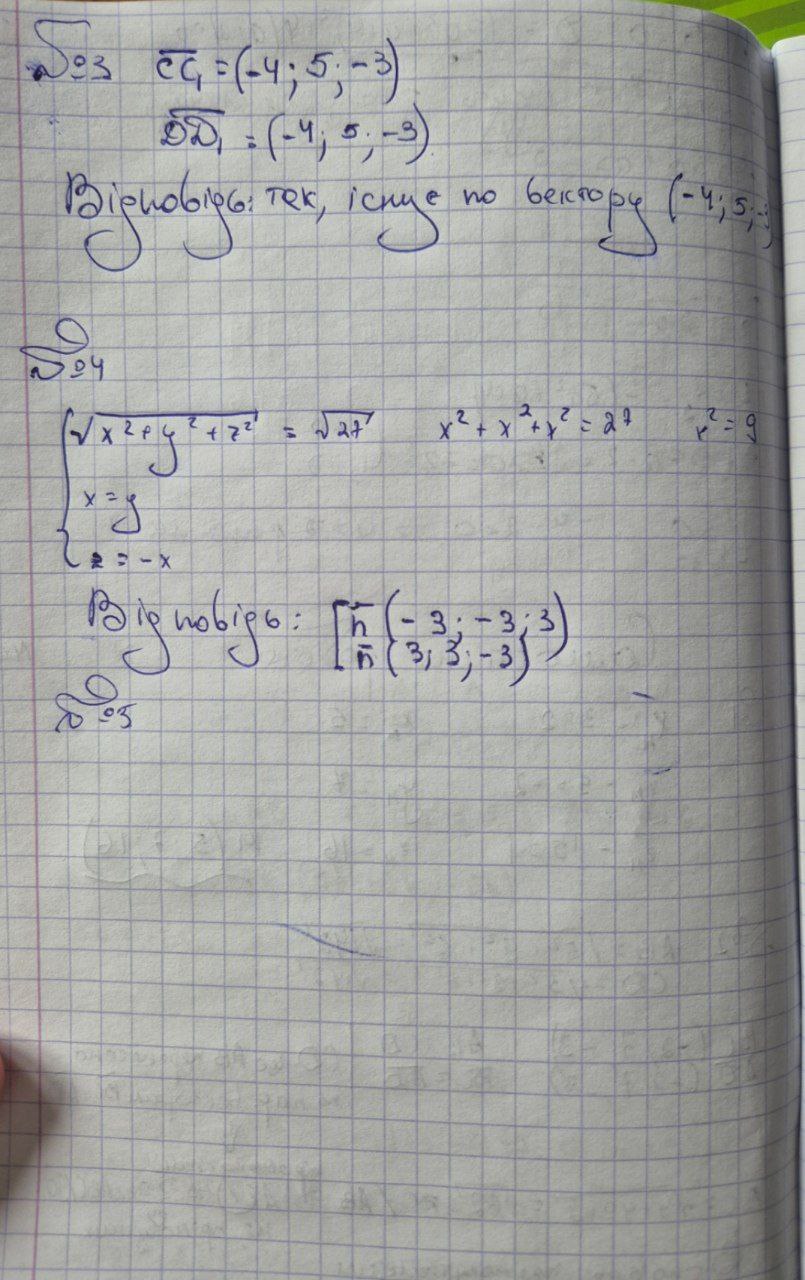 №3 CC₁ = (-4; 5; -3)
DD₁ = (-4; 5; -3)
Відповідь: так, існує по вектору (-4; 5; -3
№4
√x²+y²+z² = √27 x² + x² + x² = 27 x² = 9
x = y
z = -x
Відповідь: [ n (-3; -3; 3)
n (3; 3; -3)
№5